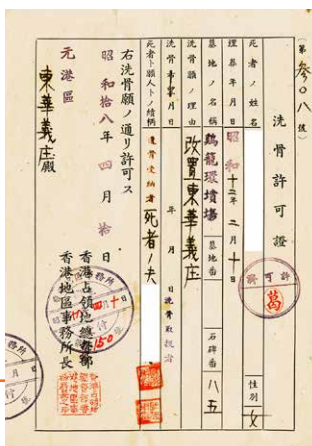 第参〇八號
洗骨許可證
死者ノ姓名
性別 女
埋葬年月日 昭和十三年二月十日
墓地ノ名稱 鷄籠環墳場 墓地番 石碑番 八五
洗骨願ノ理由 改置東華義庄
洗骨希望日 年 月 日 洗骨取扱者
死者ト願人トノ續柄 遺骨受納者 死者ノ夫
右洗骨願ノ通リ許可ス
昭和拾八年四月拾日
香港占領地總督部
香港地區事務所長
元港區
東華義庄殿
許可濟
萬